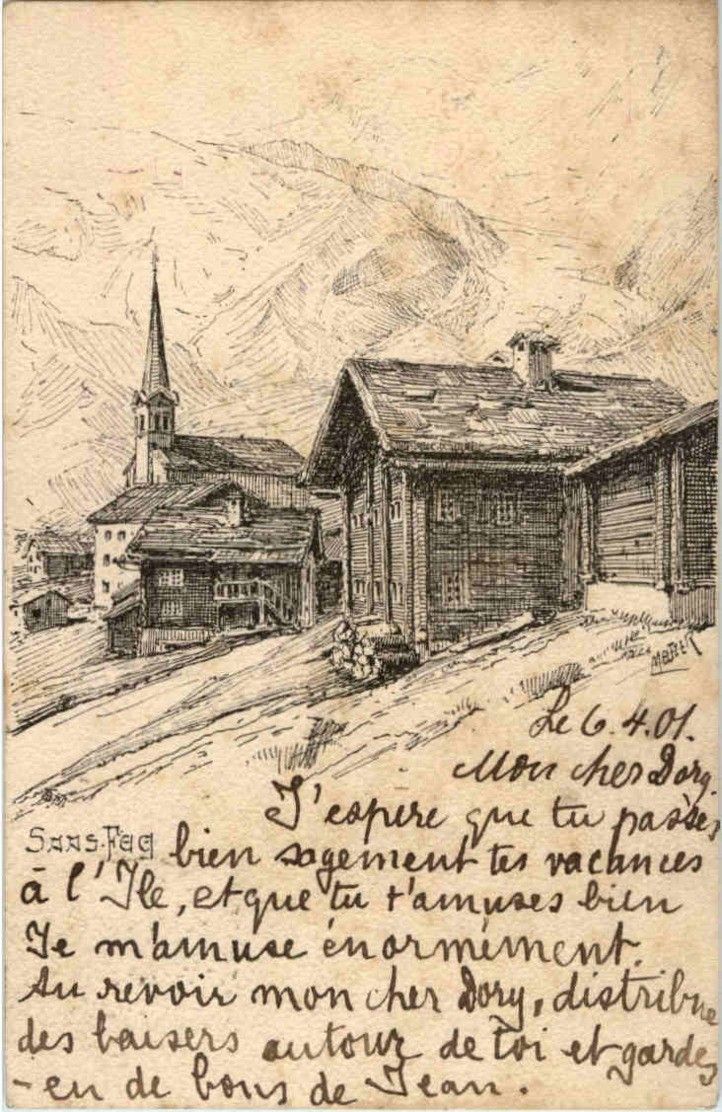 Le 6.4.01.
Mon cher Dory.
J'espere que tu passes
Saas-Fee bien sagement tes vacances
à l'Ile, et que tu t'amuses bien
Je m'amuse énormément.
Au revoir mon cher Dory, distribue
des baisers autour de toi et gardes
-en de bons de Jean.